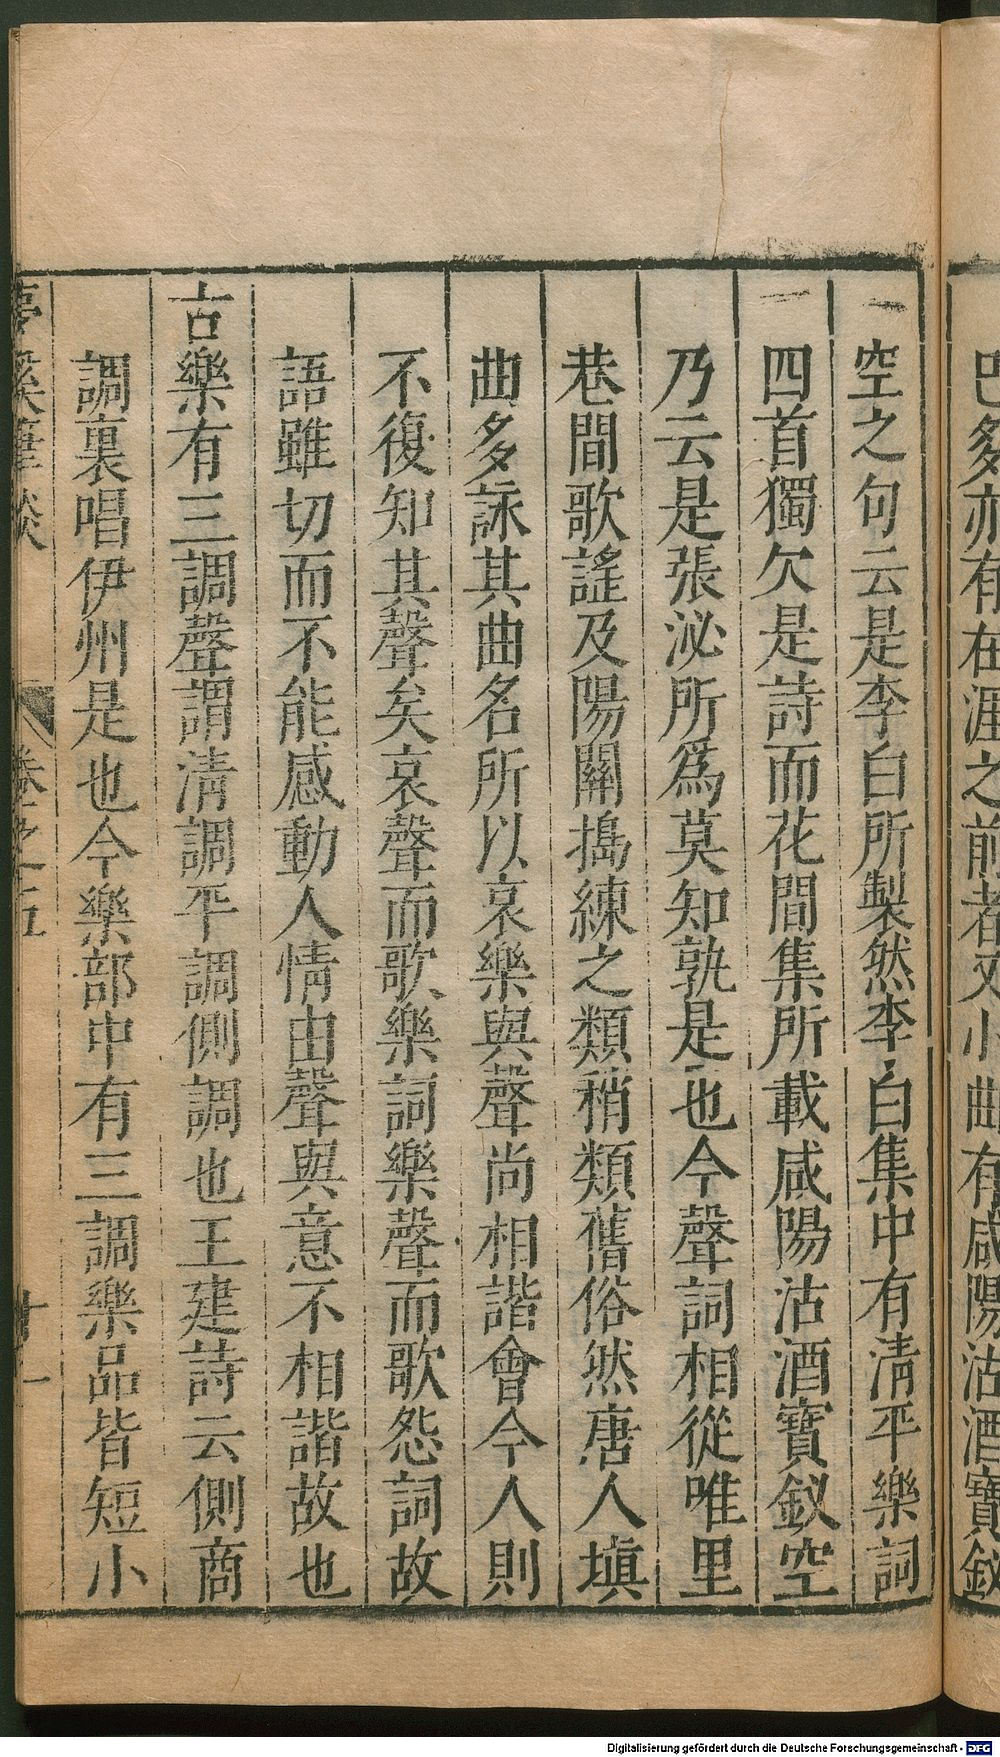 巴䬸亦有在涯之前者又小曲有咸陽沽酒寶釵
空之句云是李白所製然李白集中有清平樂詞
四首獨欠是詩而花間集所載咸陽沽酒寶釵空
乃云是張泌所爲莫知孰是也今聲詞相從唯里
巷間歌謠及陽關搗練之類稍類舊俗然唐人填
曲多詠其曲名所以哀樂與聲尚相諧會今人則
不復知其聲矣哀聲而歌樂詞樂聲而歌怨詞故
語雖切而不能感動人情由聲與意不相諧故也
古樂有三調聲謂清調平調側調也王建詩云側商
調裏唱伊州是也今樂部中有三調樂品皆短小
夢溪筆談 卷之五 十一
Digitalisierung gefördert durch die Deutsche Forschungsgemeinschaft - DFG